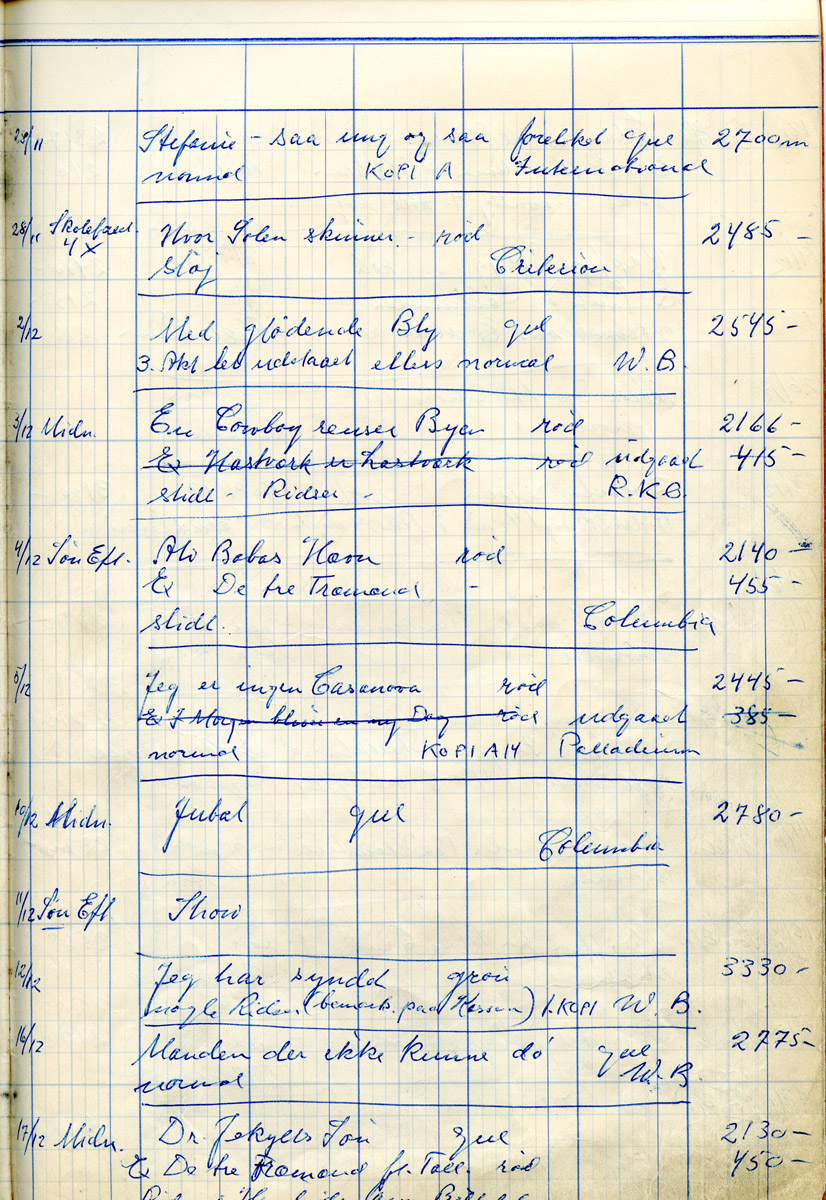 /11 Stefanie - saa ung og saa forelsket gul 2700m
normal KOPI A International
28/11 Skolefored. Hvor Solen skinner - rød 2485 -
4X støj Criterion
2/12 Med glødende Bly gul 2545 -
3. Akt let udslaaet ellers normal W.B.
3/12 Midn. En Cowboy renser Byen rød 2166 -
Ex Hastværk er Lastværk rød udgaaet 415 -
slidt - Ridser - R.K.O.
4/12 Søn Eft. Ali Babas Hævn rød 2140 -
Ex De tre Tramond - 455 -
slidt. Columbia
5/12 Jeg er ingen Casanova rød 2445 -
Ex I Morgen bliver en ny Dag rød udgaaet 385 -
normal KOPI A14 Palladium
10/12 Midn. Jubal gul 2780 -
Columbia
11/12 Søn Eft Show
12/12 Jeg har syndet grøn 3330 -
nogle Ridser (bemærk. paa Kassen) 1. KOPI W.B.
16/12 Manden der ikke kunne dø gul 2775 -
normal W.B.
17/12 Midn. Dr. Jekylls Søn gul 2130 -
Ex De tre Tramond rød 450 -